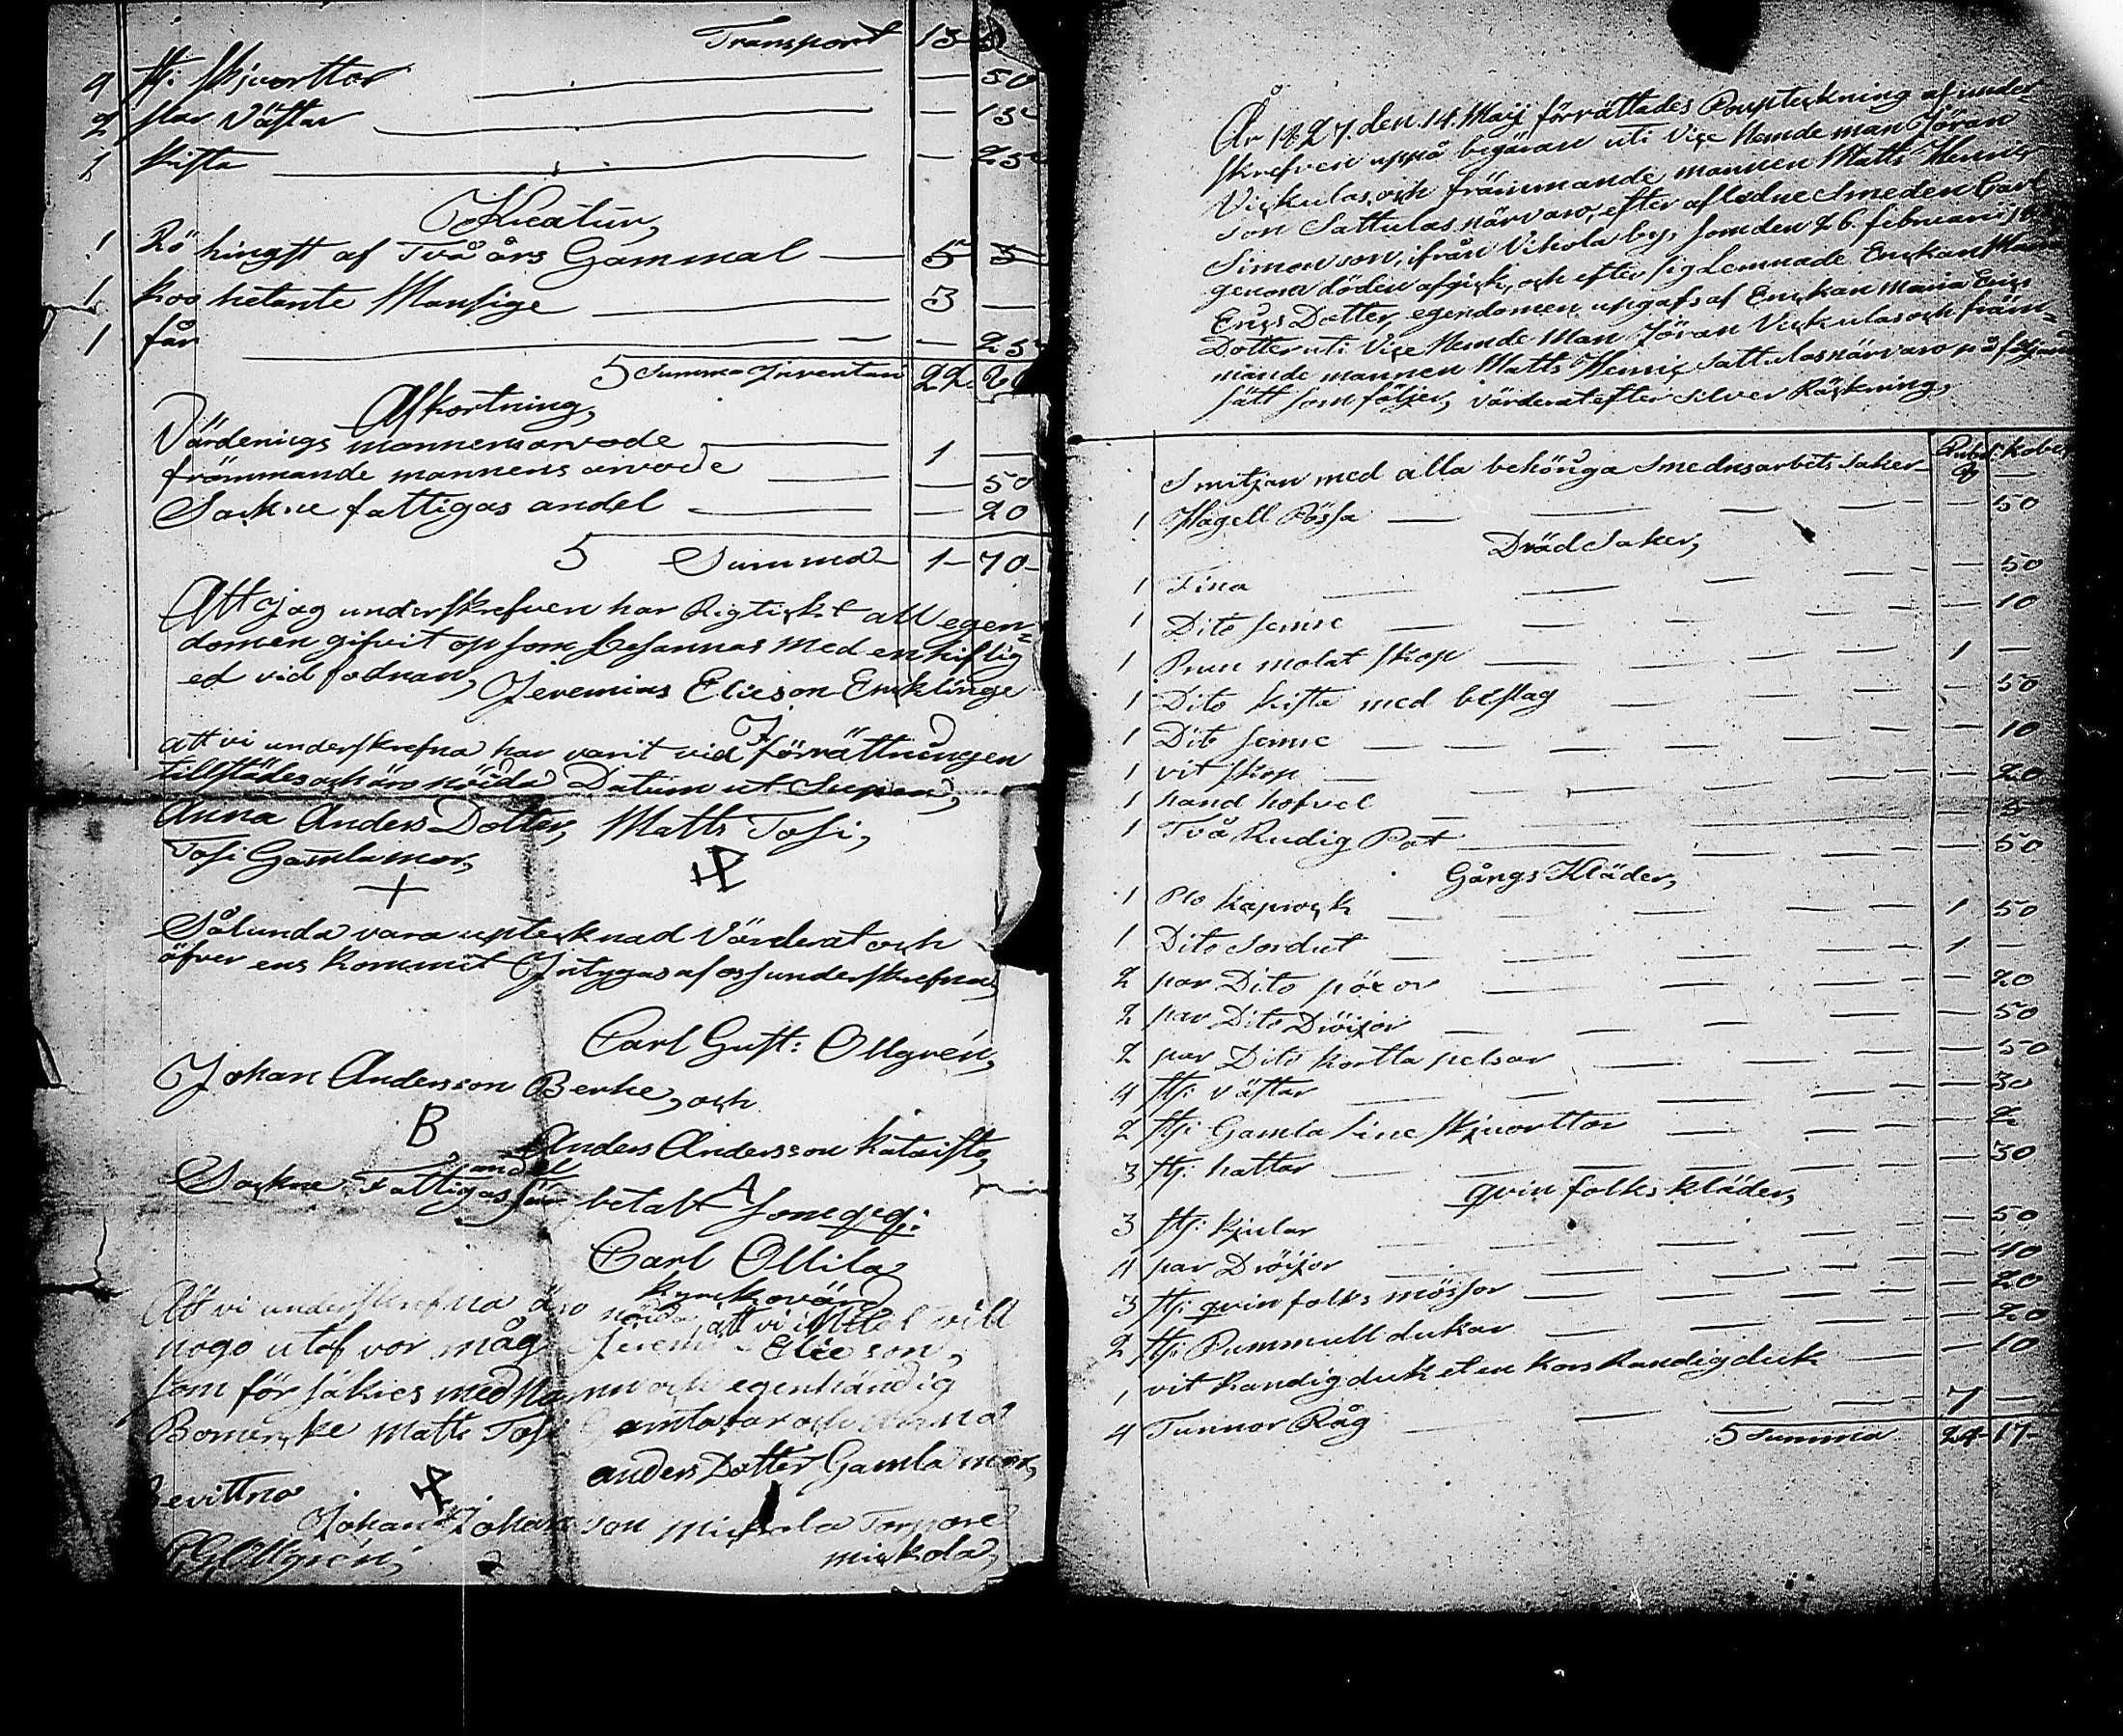 Transport 13
4 st: skjvorttor — 50
2 slar Västar — 15
1 kista — 25
Kreatur,
1 Rö hingst af Två års Gammal — 5
1 koo hetante Mansige — 3 —
1 får — 25
S Summa Inventari 22
Afkortning,
Värderings mannens arvode — 1 —
främmande mannens arvode — 50
Sockne fattigas andel — 20
S Summa 1 - 70 -
Att jag underskrefven har Rigtickt all egen=
domen gifvit op som besannas med en hiflig
ed vid fodran, Jeremias Elieson Encklinge
att vi underskrefna har varit vid förrättningen
tillstädes och äro nöida Datum ut Supra,
Anna Anders Dotter, Matts Tosi,
Tosi Gamla mor,
Sålunda vara uptecknad Värderat och
öfver ens kommit Intygas af oss underskrefna,
Carl Gust: Ollgrén,
Johan Andersson Berke, och
B
Anders Andersson Kataisto,
andel
Sockne Fattigas är betalt som qvq:
A
Carl Ollila
kyrckovärd
Att vi underskrefna äro nöida, att vi icke vill
nogo utaf vor måg Jeremias Elieson,
som försäkres med Namn och egenhändig
Bomercke Matts Tosi Gamla far och Anna
anders Dotter Gamla mor,
bevittna
Johan Johansson Mickola Torpare
CGOllgrén, mickola,
År 1827. den 14. Maij förrättades Boupteckning af under=
skrefven uppå begäran uti Vice Nemde man Jöran
Vickulas, och främmande mannen Matts Henric
son Sattulas närvaro, efter aflednе Smeden Carl
Simonson, ifrån Vikola by, som den 26. februari
genom döden afgick, och efter sig Lemnade Enckan Maria
Erics Dotter, egendomen upgafs af Enckan Maria Erics
Dotter uti Vice Nemde Man Jöran Vickulas och främ=
mande mannen Matts Henric Sattulas närvaro på följande
sätt som följer, värderat efter Silver Räckning,
Rubel: kobec
Smitjan med alla behöriga Smedns arbets saker 8 —
1 Hagell Bössa — 50
Dräd Saker,
1 Tina — 50
1 Dito semre — 10
1 Brun molat skop 1 —
1 Dito kista med beslag — 50
1 Dito semre — 10
1 vit skop — 20
1 hand hofvel — 5
1 Två Rudig Pat — 50
Gångs Kläder,
1 Blo kaprock 1 50
1 Dito Sordut 1 —
2 par Dito pöxor — 20
2 par Dito Dröijor — 50
2 par Dito kortta pelsar — 50
4 st: västar — 30
2 st: Gamla Line skjuorttor — 2
3 st: hattar — 30
qvin folks kläder,
3 st: kjular — 50
4 par Dröijor — 40
3 st: qvin folks mössor — 20
2 st: Bummull dukar — 20
1 vit Randig duk et en kors Randig duk — 10
4 Tunnor Råg 7 —
S Summa 24 - 17 -